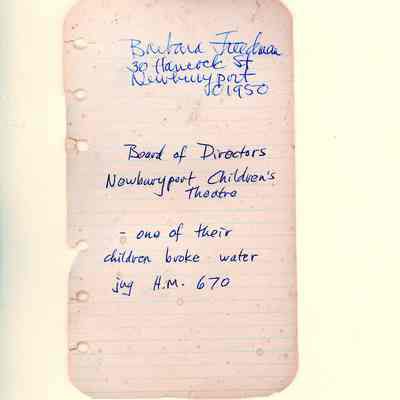 Barbara Freedman
30 Hancock St
Newburyport
01950
Board of Directors
Newburyport Children's
Theatre
- one of their
children broke water
jug H.M. 670